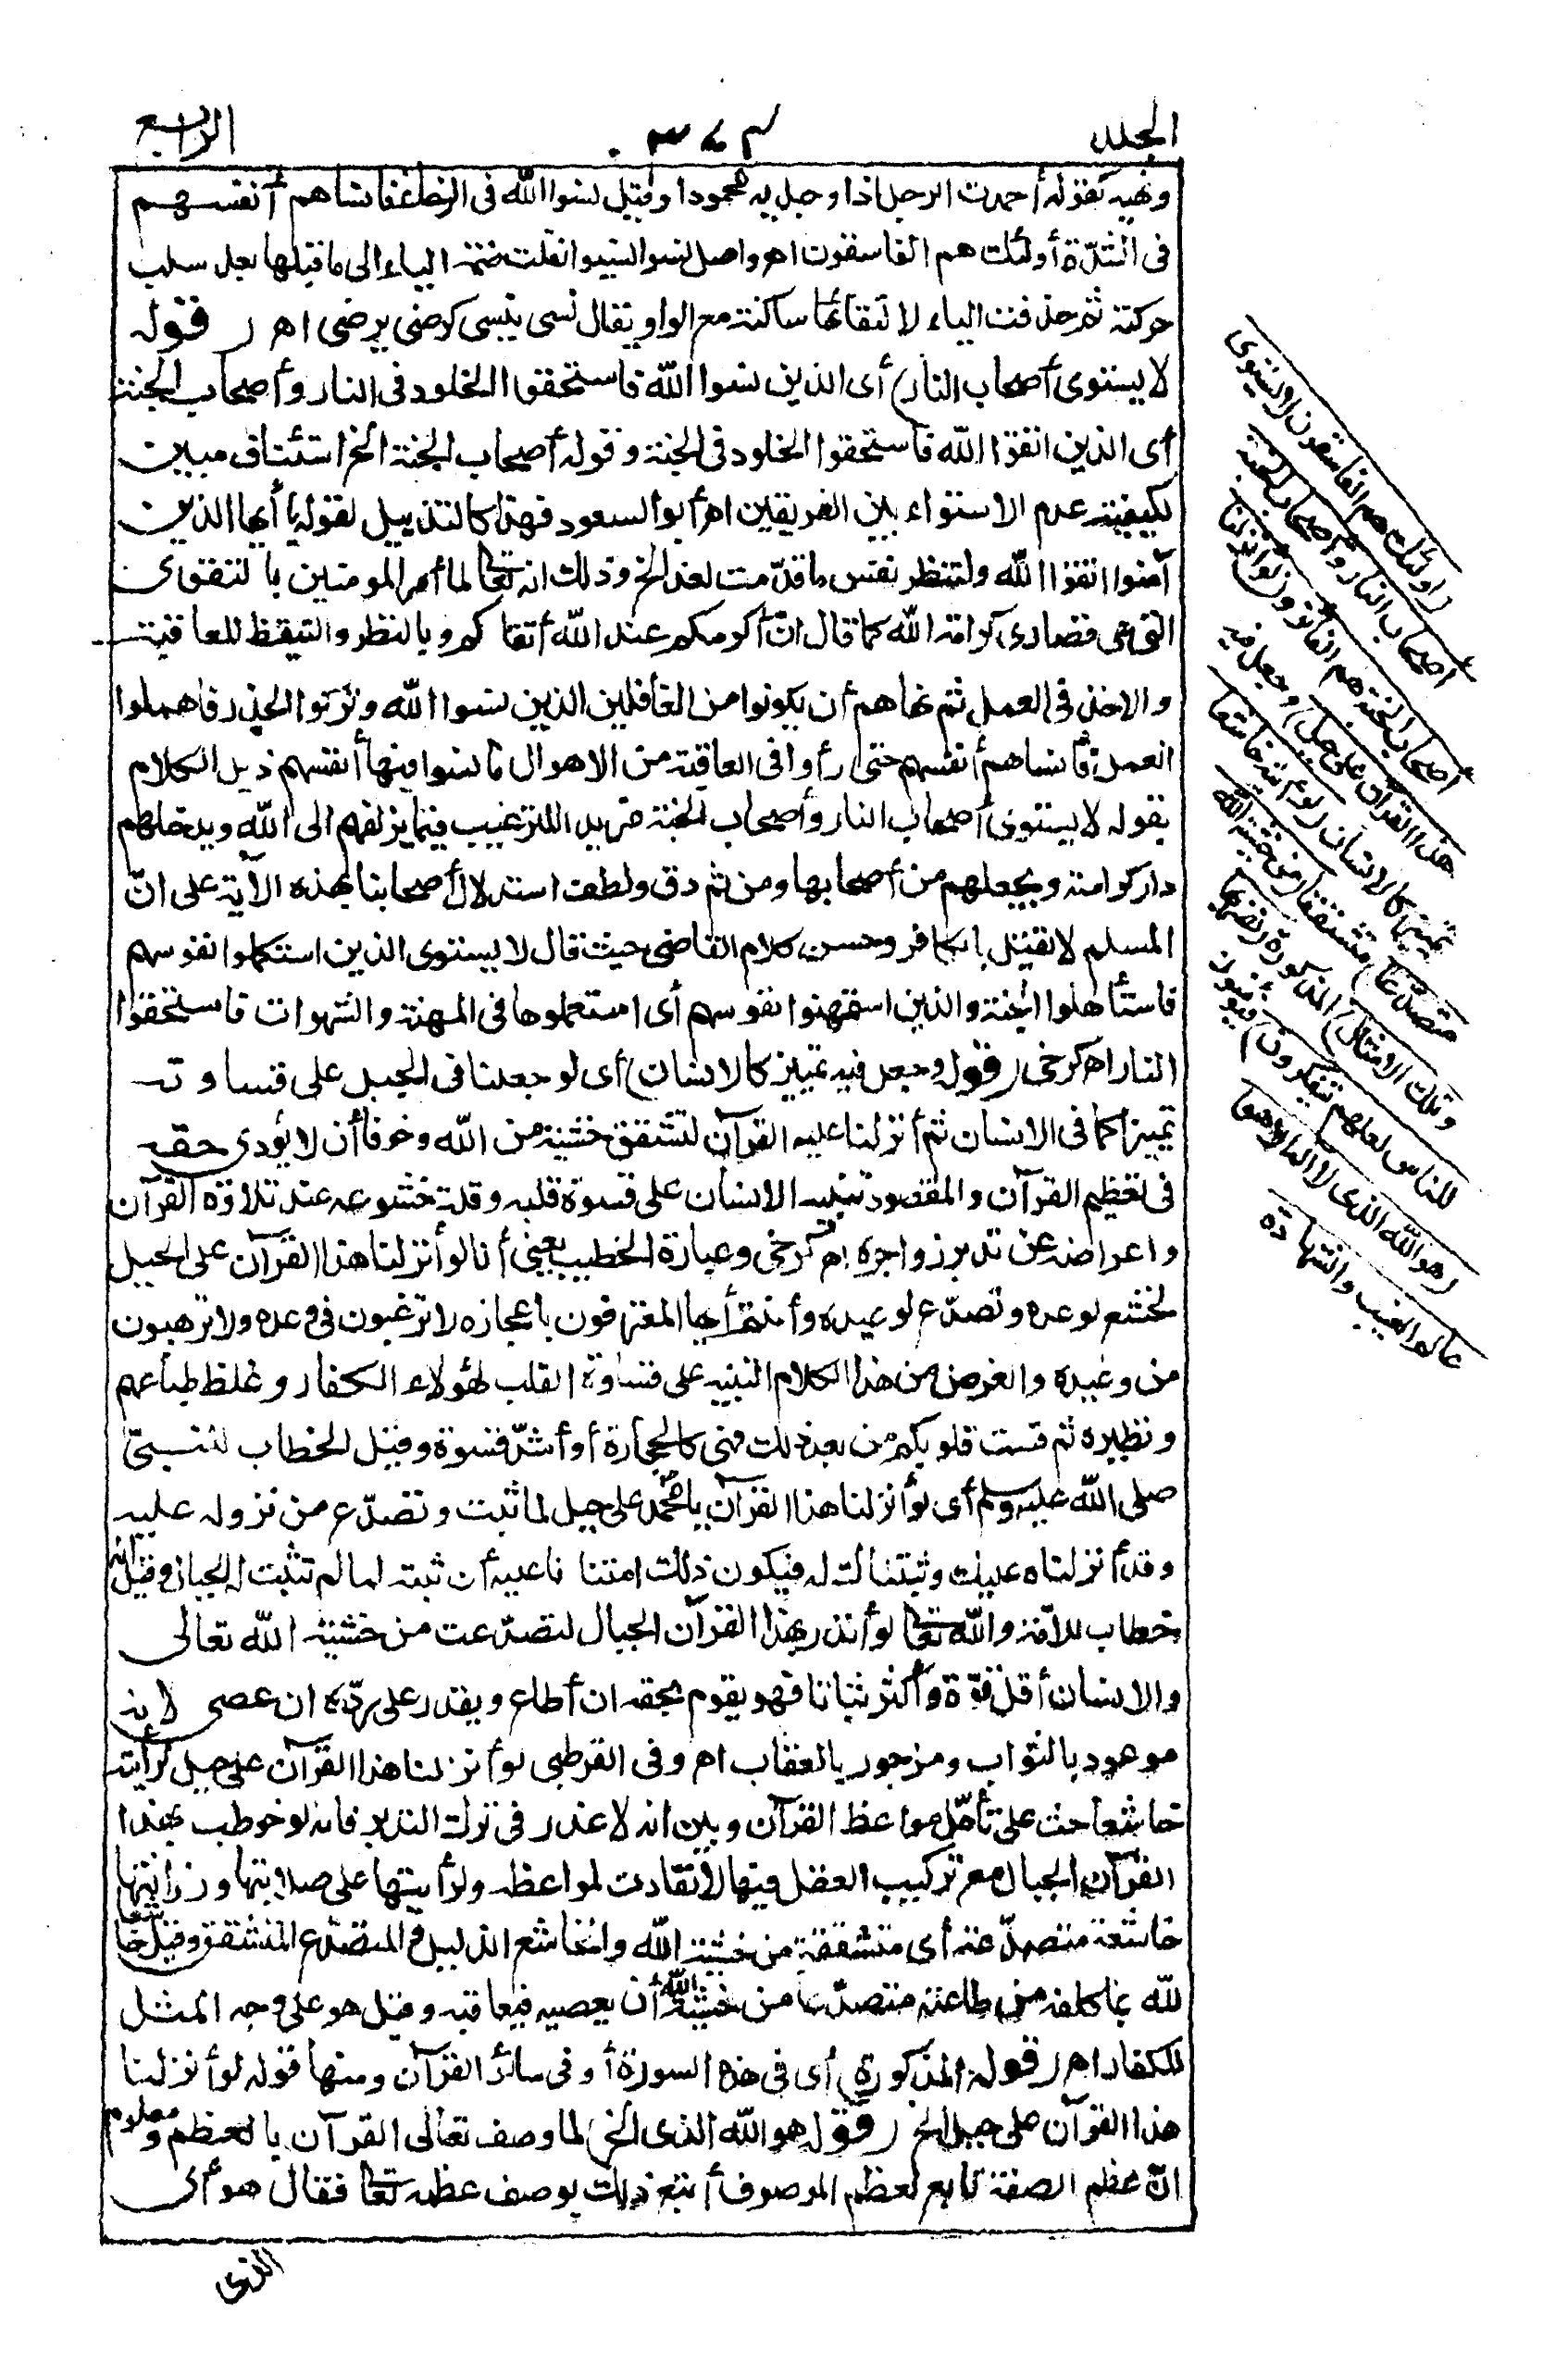 المجلد
٣٧٣
الرابع
ونهيه كقوله أحمدت الرجل اذا وجدته محمودا وقيل نسوا الله فى الرخاء فأنساهم أنفسهم
فى الشدّة أولئك هم الفاسقون اهـ واصل نسوا نسيوا نقلت ضمة الياء الى ما قبلها بعد سلب
حركته ثم حذفت الياء لالتقائها ساكنة مع الواو يقال نسى ينسى كرضى يرضى اهـ (قوله
لا يستوى أصحاب النار) أى الذين نسوا الله فاستحقوا الخلود فى النار وأصحاب الجنة
أى الذين اتقوا الله فاستحقوا الخلود فى الجنة وقوله أصحاب الجنة الخ استئناف مبين
لكيفية عدم الاستواء بين الفريقين اهـ أبو السعود فهذا كالتذييل لقوله يا أيها الذين
آمنوا اتقوا الله ولتنظر نفس ما قدّمت لغد الخ وذلك انه تعالى لما أمر المؤمنين بالتقوى
التى هى قصارى كرامة الله كما قال انّ أكرمكم عند الله أتقاكم وبالنظر والتيقظ للعاقبة
والاخذ فى العمل ثم نهاهم أن يكونوا من الغافلين الذين نسوا الله وتركوا الحذر فأهملوا
العمل فأنساهم أنفسهم حتى رأوا فى العاقبة من الاهوال ما نسوا فيها أنفسهم ذيل الكلام
بقوله لا يستوى أصحاب النار وأصحاب الجنة مزيد اللترغيب فيما يزلفهم الى الله ويدخلهم
دار كرامته ويجعلهم من أصحابها ومن ثم دق ولطف استدلال أصحابنا بهذه الآية على انّ
المسلم لا يقتل بالكافر وحسن كلام القاضى حيث قال لا يستوى الذين استكملوا نفوسهم
فاستأهلوا الجنة والذين استمهنوا نفوسهم أى استعملوها فى المهنة والشهوات فاستحقوا
النار اهـ كرخى (قوله وجعل فيه تمييز كالانسان) أى لو جعلنا فى الجبل على قساوته
تمييزا كما فى الانسان ثم أنزلنا عليه القرآن لتشقق خشية من الله وخوفا أن لا يؤدى حقه
فى تعظيم القرآن والمقصود تنبيه الانسان على قسوة قلبه وقلة خشوعه عند تلاوة القرآن
واعراضه عن تدبر زواجره اهـ كرخى وعبارة الخطيب يعنى أنا لو أنزلنا هذا القرآن على الجبل
لخشع لوعده وتصدّع لوعيده وأنتم أيها المعترفون باعجازه لا ترغبون فى وعده ولا ترهبون
من وعيده والغرض من هذا الكلام التنبيه على قساوة القلب لهؤلاء الكفار وغلظ طباعهم
ونظيره ثم قست قلوبكم من بعد ذلك فهى كالحجارة أو أشدّ قسوة وقيل الخطاب للنبىّ
صلى الله عليه وسلم أى لو أنزلنا هذا القرآن يا محمد على جبل لما ثبت وتصدّع من نزوله عليه
وقد أنزلناه عليك وثبتناك له فيكون ذلك امتنانا عليه أن ثبته لما لم تثبت له الجبال وقيل انه
خطاب للامّة والله تعالى لو أنذر بهذا القرآن الجبال لتصدّعت من خشية الله تعالى
والانسان أقل قوّة وأكثر ثباتا فهو يقوم بحقه ان أطاع ويقدر على ردّه ان عصى لانه
موعود بالثواب ومزجور بالعقاب اهـ وفى القرطبى لو أنزلنا هذا القرآن على جبل لرأيته
خاشعا حث على تأمّل مواعظ القرآن وبين انه لا عذر فى ترك التدبر فانه لو خوطب بهذا
القرآن الجبال مع تركيب العقل فيها لانقادت لمواعظه ولرأيتها على صلابتها ورزانتها
خاشعة متصدّعة أى متشققة من خشية الله والخاشع الذليل والمتصدّع المتشقق وقيل خاشعا
لله بما كلفه من طاعته متصدّعا من خشية الله أن يعصيه فيعاقبه وقيل هو على وجه المثل
للكفار اهـ (قوله المذكورة) أى فى هذه السورة أو فى سائر القرآن ومنها قوله لو أنزلنا
هذا القرآن على جبل الخ (قوله هو الله الذى الخ) لما وصف تعالى القرآن بالعظم ومعلوم
انّ عظم الصفة تابع لعظم الموصوف أتبع ذلك بوصف عظمه تعالى فقال هو أى
الذى
(أولئك هم الفاسقون لا يستوى
أصحاب النار وأصحاب الجنة
أصحاب الجنة هم الفائزون لو أنزلنا
هذا القرآن على جبل) وجعل فيه
تمييز كالانسان (لرأيته خاشعا
متصدّعا) متشققا (من خشية الله
وتلك الامثال) المذكورة (نضربها
للناس لعلهم يتفكرون) فيؤمنون
(هو الله الذى لا اله الا هو
عالم الغيب والشهادة